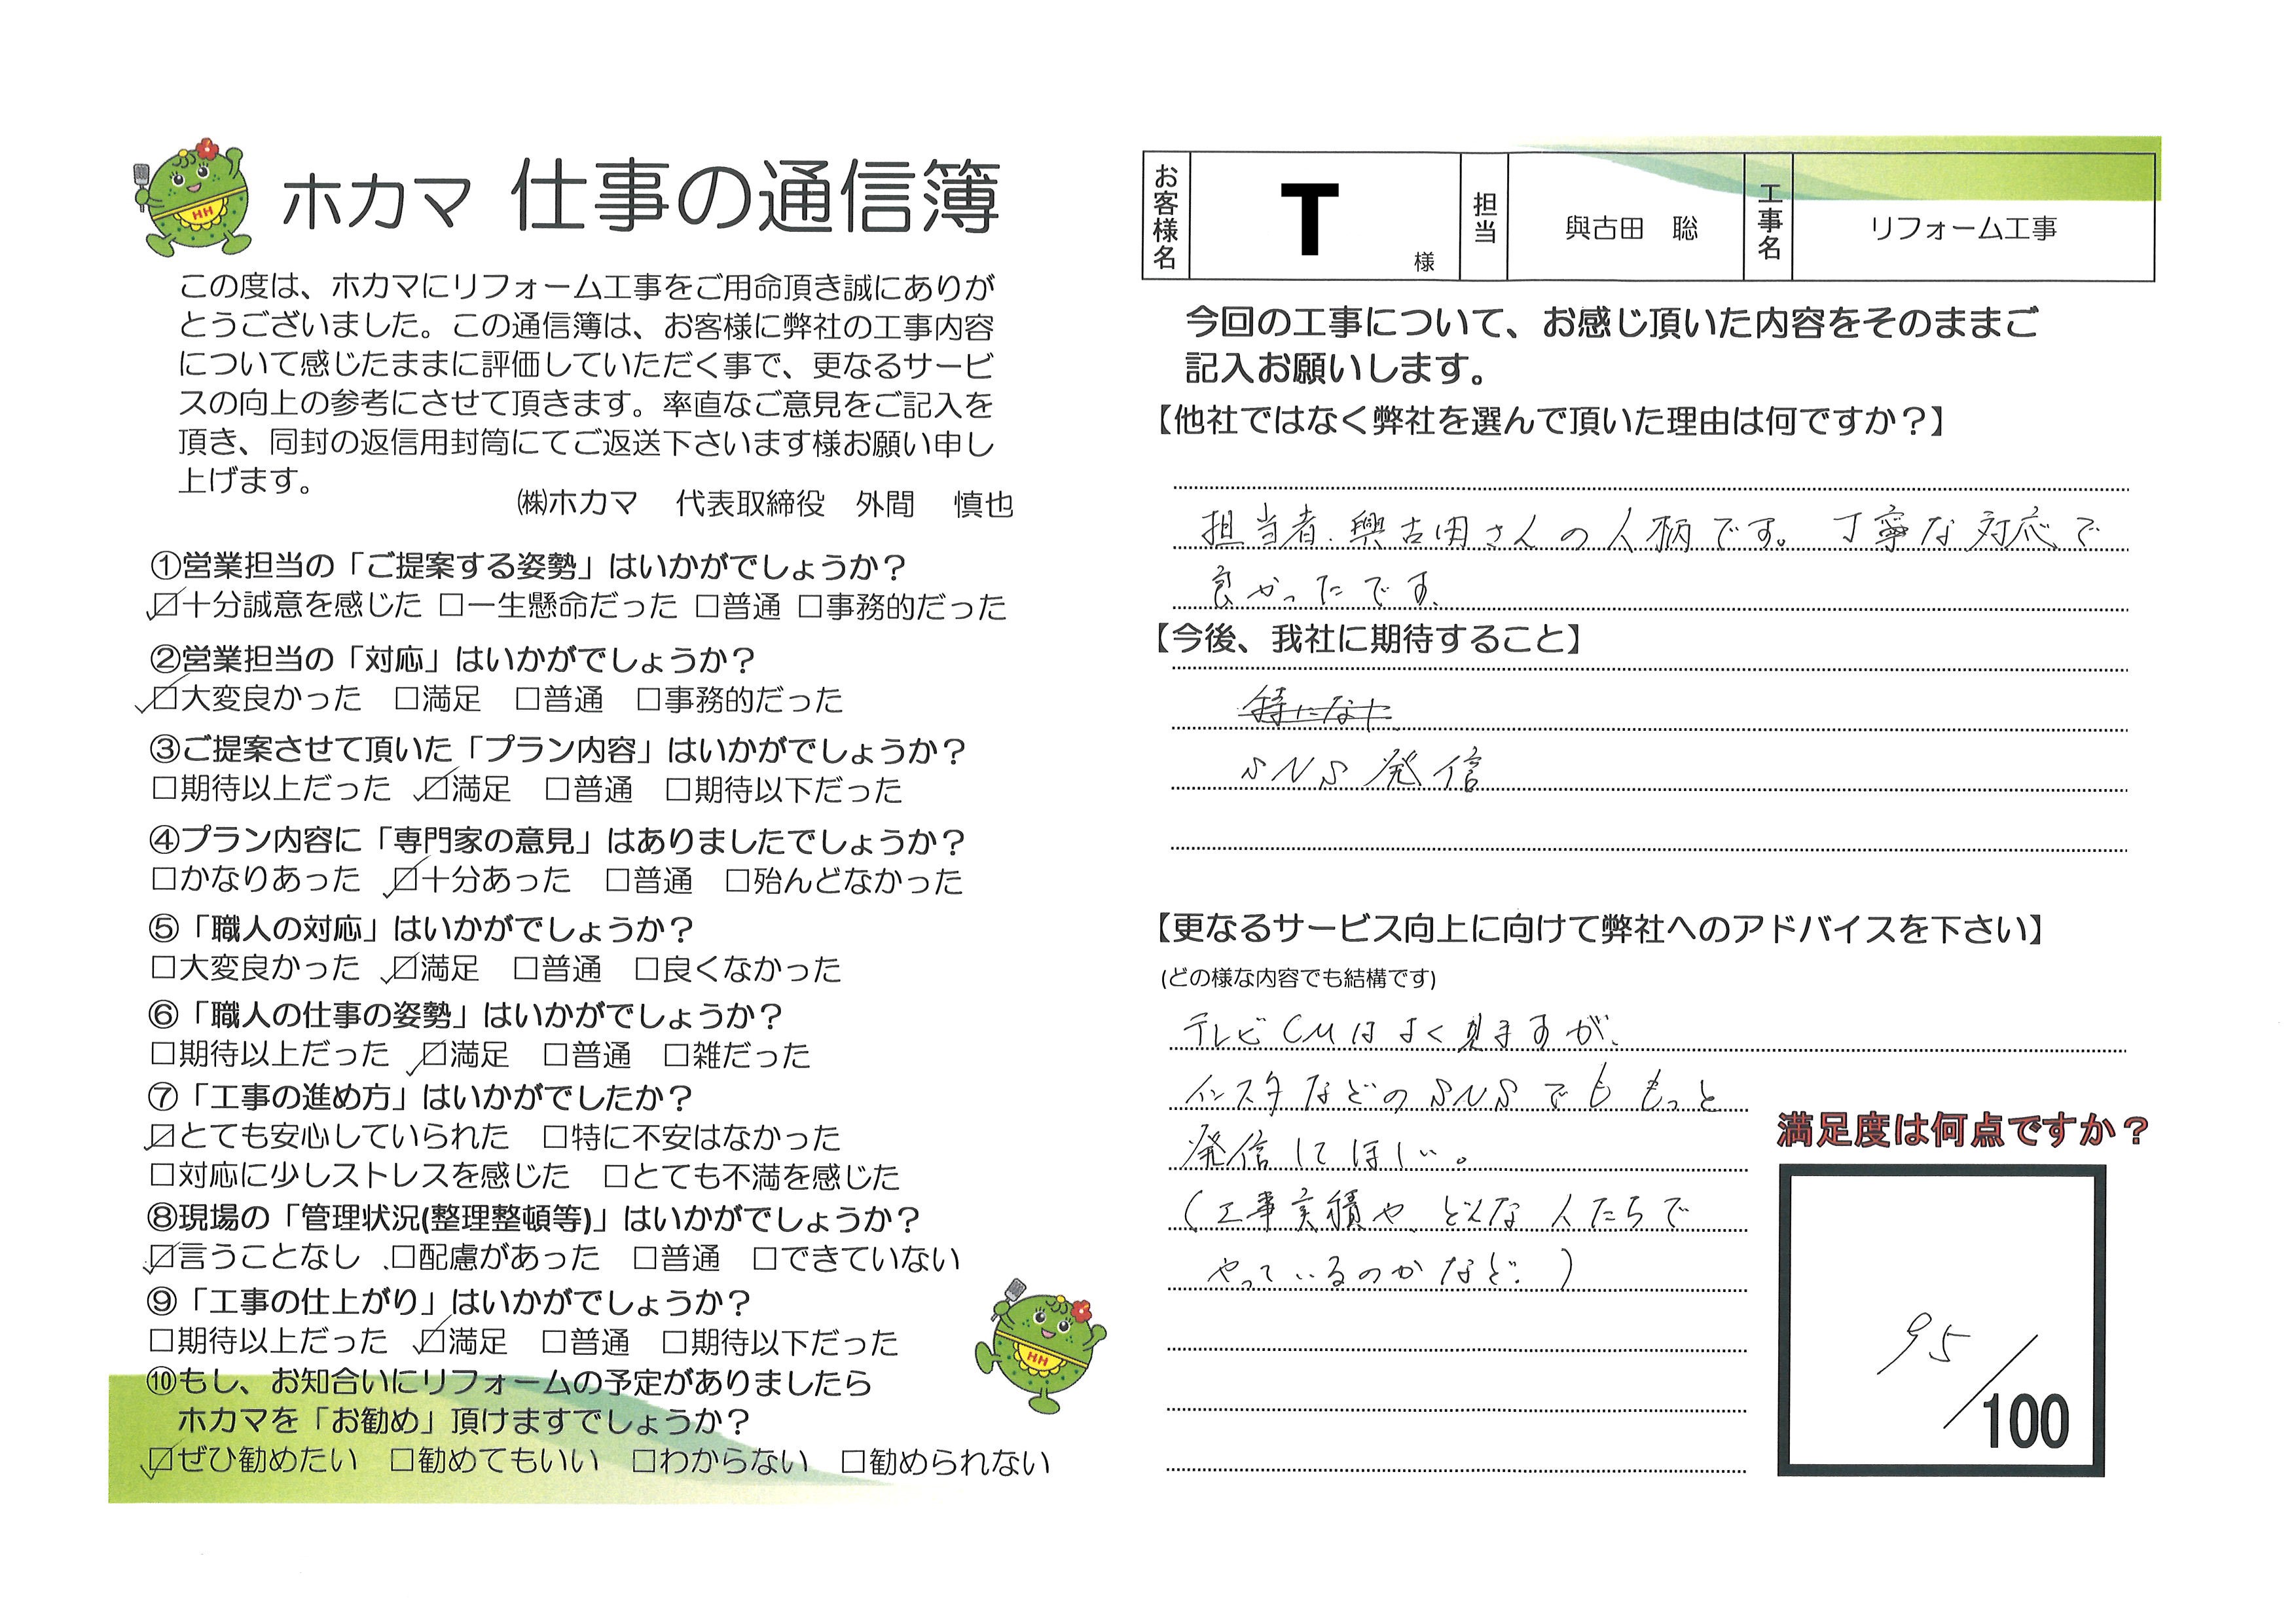 ホカマ 仕事の通信簿
この度は、ホカマにリフォーム工事をご用命頂き誠にありが
とうございました。この通信簿は、お客様に弊社の工事内容
について感じたままに評価していただく事で、更なるサービ
スの向上の参考にさせて頂きます。率直なご意見をご記入を
頂き、同封の返信用封筒にてご返送下さいます様お願い申し
上げます。
㈱ホカマ 代表取締役 外間 慎也
①営業担当の「ご提案する姿勢」はいかがでしょうか？
☑十分誠意を感じた □一生懸命だった □普通 □事務的だった
②営業担当の「対応」はいかがでしょうか？
☑大変良かった □満足 □普通 □事務的だった
③ご提案させて頂いた「プラン内容」はいかがでしょうか？
□期待以上だった ☑満足 □普通 □期待以下だった
④プラン内容に「専門家の意見」はありましたでしょうか？
□かなりあった ☑十分あった □普通 □殆んどなかった
⑤「職人の対応」はいかがでしょうか？
□大変良かった ☑満足 □普通 □良くなかった
⑥「職人の仕事の姿勢」はいかがでしょうか？
□期待以上だった ☑満足 □普通 □雑だった
⑦「工事の進め方」はいかがでしたか？
☑とても安心していられた □特に不安はなかった
□対応に少しストレスを感じた □とても不満を感じた
⑧現場の「管理状況(整理整頓等)」はいかがでしょうか？
☑言うことなし □配慮があった □普通 □できていない
⑨「工事の仕上がり」はいかがでしょうか？
□期待以上だった ☑満足 □普通 □期待以下だった
⑩もし、お知合いにリフォームの予定がありましたら
ホカマを「お勧め」頂けますでしょうか？
☑ぜひ勧めたい □勧めてもいい □わからない □勧められない
HH
HH
お客様名 T 様 担当 與古田 聡 工事名 リフォーム工事
今回の工事について、お感じ頂いた内容をそのままご
記入お願いします。
【他社ではなく弊社を選んで頂いた理由は何ですか？】
担当者、與古田さんの人柄です。丁寧な対応で
良かったです。
【今後、我社に期待すること】
特になし
SNS発信
【更なるサービス向上に向けて弊社へのアドバイスを下さい】
(どの様な内容でも結構です)
テレビCMはよく見ますが、
インスタなどのSNSでももっと
発信してほしい。
(工事実績や、どんな人たちで
やっているのかなど。)
満足度は何点ですか？
95/100